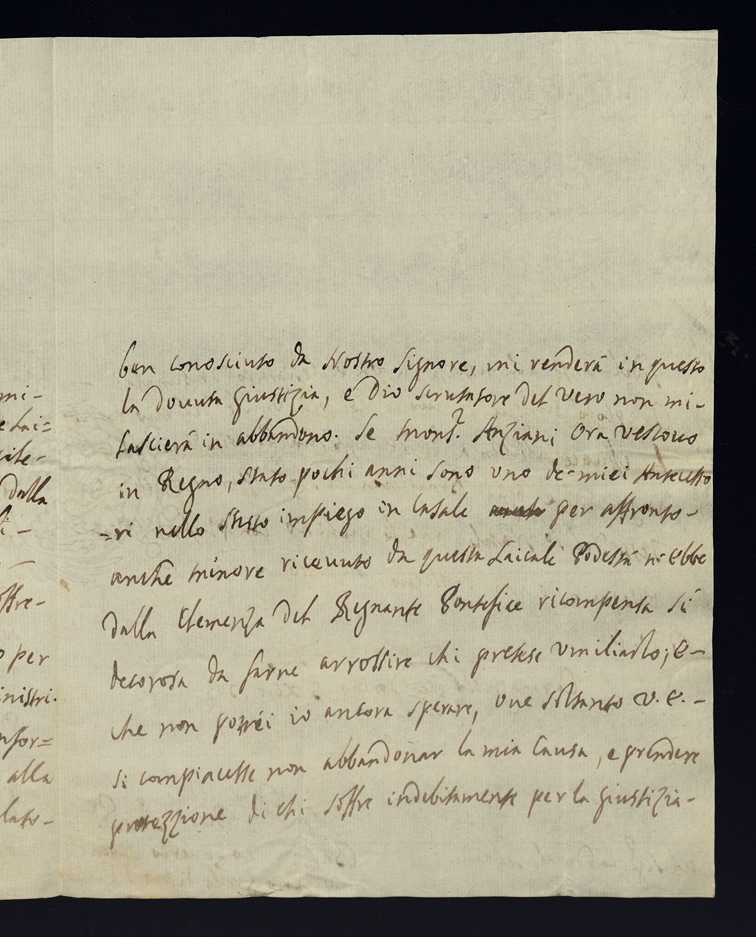 ben conosciuto da Nostro Signore, mi renderà in questo
la dovuta giustizia, e Dio scrutatore del vero non mi-
lascierà in abbandono. Se Mons.r Anziani ora vescovo
in Regno, stato pochi anni sono uno de-miei Antecesso
=ri nello stesso impiego in Casale per affronto-
anche minore ricevuto da questa Laicale Podestà n'ebbe
dalla Clemenza del Regnante Pontefice ricompensa sì
decorosa da farne arrossire chi pretese umiliarlo; e-
che non potrei io ancora sperare, ove soltanto V. E.-
si compiacesse non abbandonar la mia Causa, e prendere
protezzione di chi soffre indebitamente per la giustizia-
mi-
e Lai=
dalla
offre-
o per
inistri.
nfor=
alla
lato-